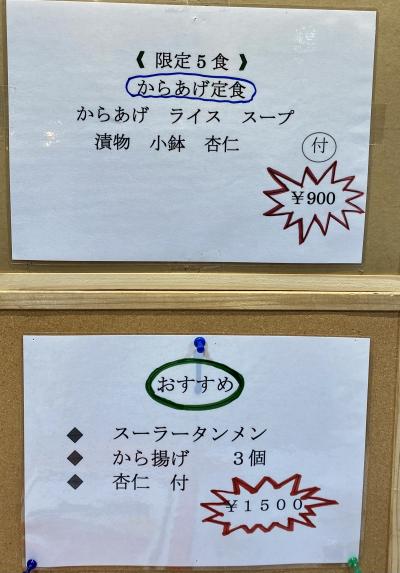 《 限定５食 》
からあげ定食
からあげ　ライス　スープ
漬物　小鉢　杏仁　付
￥900
おすすめ
◆　スーラータンメン
◆　から揚げ　３個
◆　杏仁　付
￥１５００